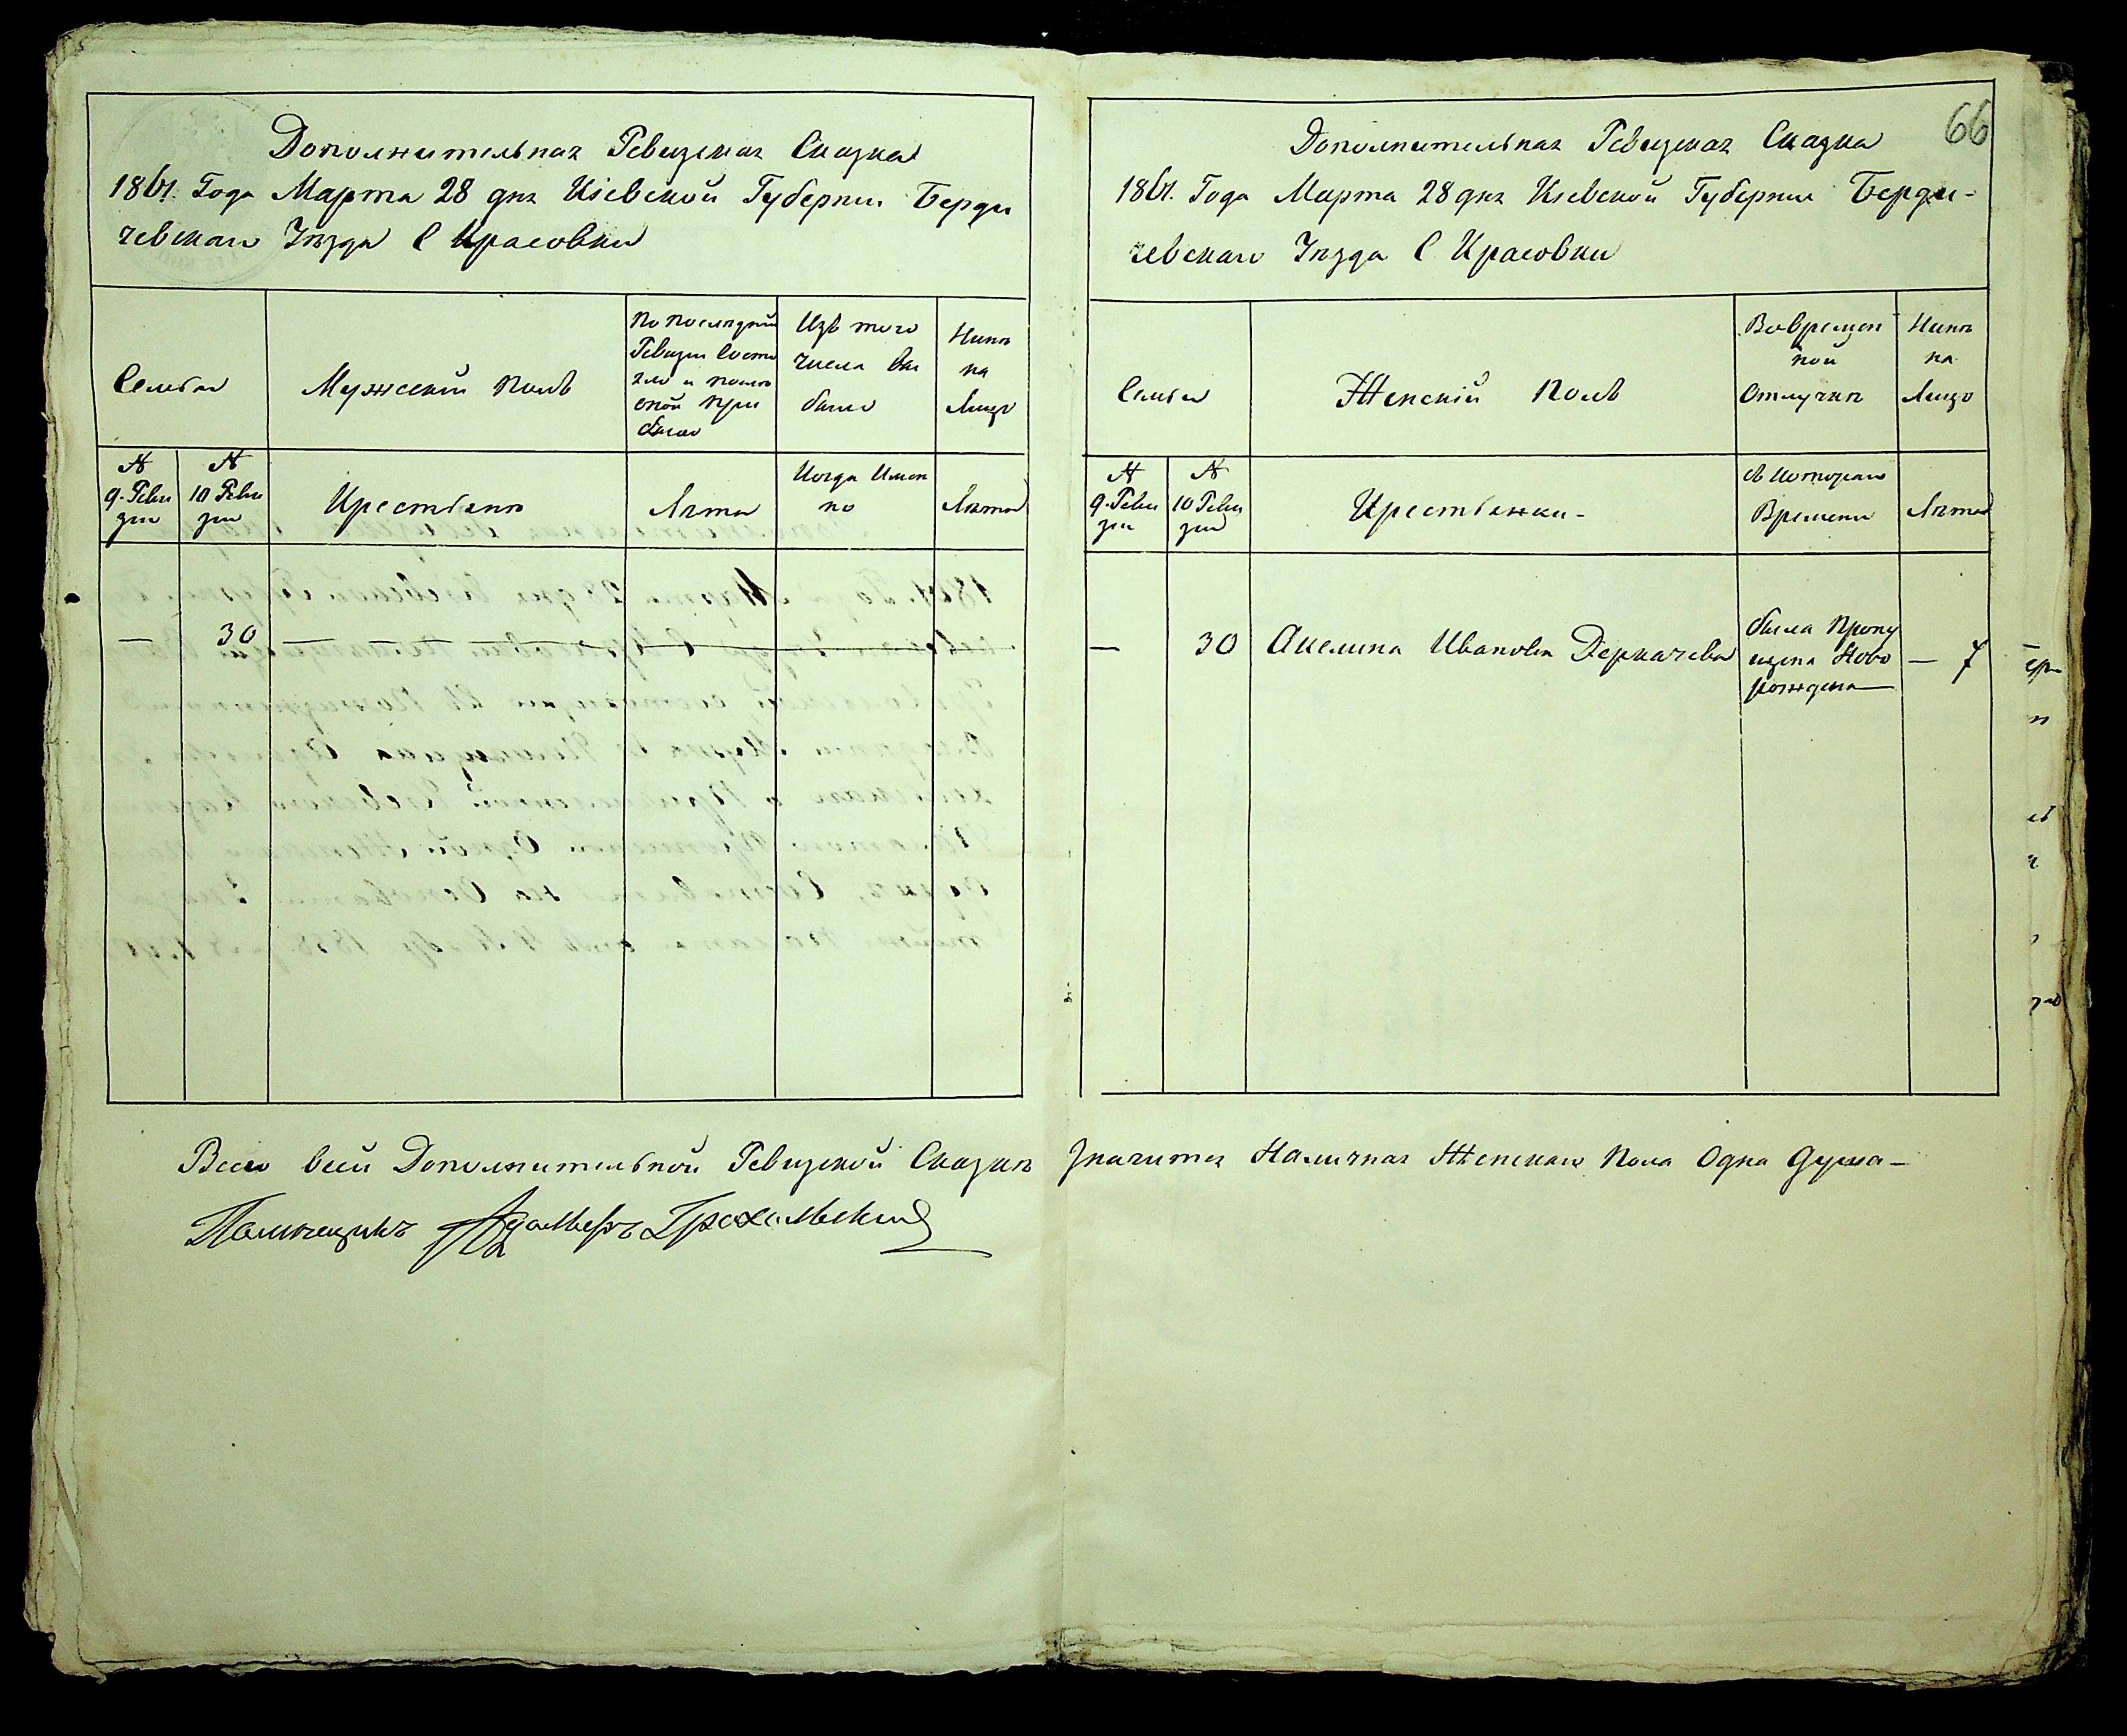 Дополнительная Ревизская Сказка
1861. Года Марта 28 дня Кіевской Губерніи Берди
чевскаго Уѣзда С Красовки
Семьи
Мужескій полъ
По последней
Ревизіи состо
яло и после
оной при
было
Изъ того
числа вы
было
Нынѣ
на
Лицо
№
9. Реви
зіи
№
10 Реви
зіи
Крестьяне
Лѣта
Когда Имен
но
Лѣта
— 30 —
66
Дополнительная Ревизская Сказка
1861. Года Марта 28 дня Кіевской Губерніи Берди-
чевскаго Уѣзда С. Красовки
Семьи
Женскій полъ
Вовремен
ной
Отлучкѣ
Нынѣ
на
Лицо
№
9. Реви
зіи
№
10 Реви
зіи
Крестьянки-
съ Котораго
Времени
Лѣта
— 30 Акелина Иванова Деркачева
была Пропу
щена Ново
рождена
— 7
Всего всей Дополнительной Ревизской Сказкѣ Значится Наличная Женскаго Пола Одна душа—
Помѣщикъ Грохольскій